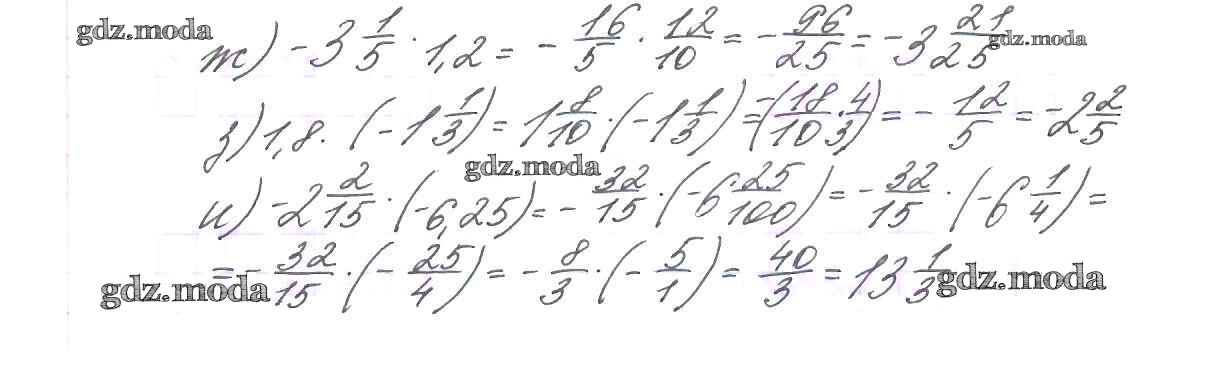 gdz.moda
ж) -3 1/5 · 1,2 = - 16/5 · 12/10 = - 96/25 = -3 21/25
gdz.moda
з) 1,8 · (-1 1/3) = 1 8/10 · (-1 1/3) = -(18/10 · 4/3) = - 12/5 = -2 2/5
gdz.moda
и) -2 2/15 · (-6,25) = - 32/15 · (-6 25/100) = - 32/15 · (-6 1/4) =
= - 32/15 · (- 25/4) = - 8/3 · (- 5/1) = 40/3 = 13 1/3
gdz.moda
gdz.moda